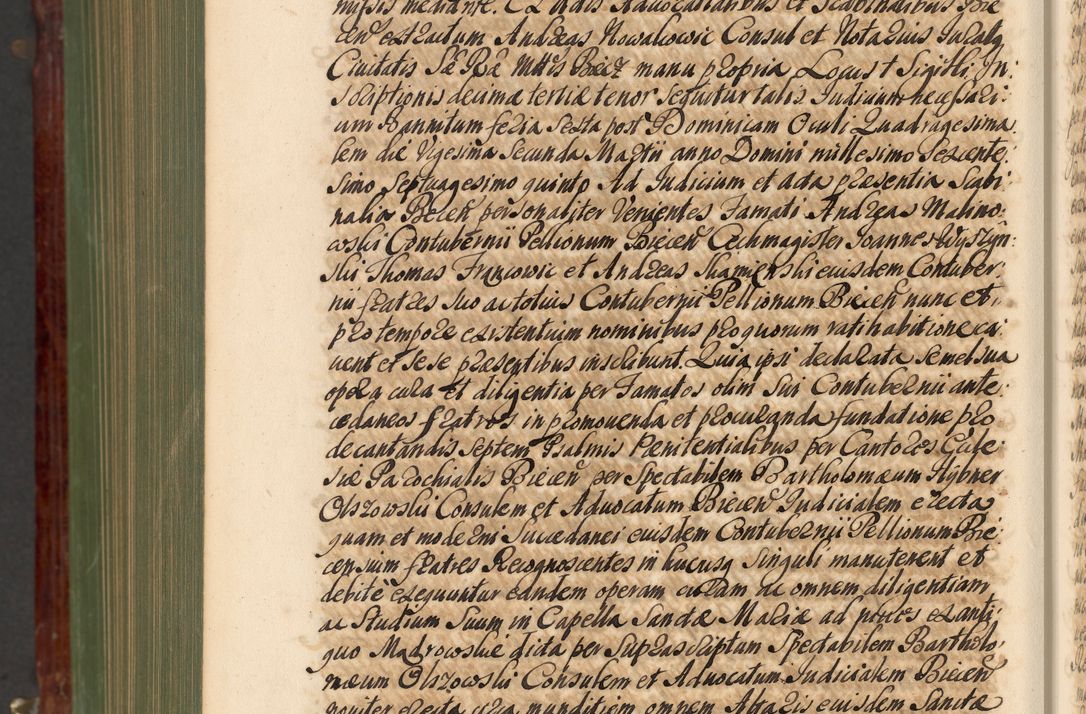 missis mediante. Ex Actis Advocatialibus et Scabinalibus Bie:
cen̄ extractum Andreas Nowakowic Consul et Notarius Jurat9
Civitatis Sæ Ræ Mttis Biecz manu propria Locus † Sigilli. In:
scriptionis decimæ tertiæ tenor sequitur talis Judicium necessari:
um Bannitum feria sexta post Dominicam Oculi Quadragesima:
lem die Vigesima Secunda Martii anno Domini millesimo Sexcente:
simo Septuagesimo quinto Ad Judicium et acta præsentia Scabi:
nalia Biecen̄ personaliter Venientes Famati Andreas Malino:
wski Contubernii Pellionum Biecen̄ Cechmagister Joannes Wyszyn:
ski Thomas Francowic et Andreas Skamienski eiusdem Contuber:
nii fratres suo ac totius Contubernii Pellionum Biecen̄ nunc et
pro tempore existentium nominibus pro quorum ratihabitione ca:
vent et se se præsentibus inscribunt. Quia ipsi declarata semel sua
opera cura et diligentia per Famatos olim sui Contubernii ante:
cedaneos fratres in promovenda et procuranda fundatione pro
decantandis septem Psalmis Pænitentialibus per Cantores Ecle:
siæ Parochialis Biecen̄ per Spectabilem Bartholomæum Hybner
Olszowski Consulem et Advocatum Biecen̄ Judicialem erecta
quam et moderni Succedanei eiusdem Contubernii Pellionum Bie:
censium fratres Recognoscentes in hucusq singuli manutenent et
debitè exequuntur eandem operam curam ac omnem diligentiam
ac Studium Suum in Capella Sanctæ Mariæ ad præces ex anti:
quo Madrowskie dicta per suprascriptum Spectabilem Bartholo:
mæum Olszowski Consulem et Advocatum Judicialem Biecen̄
noviter erecta circa munditiem omnem Altaris eiusdem Sanctæ